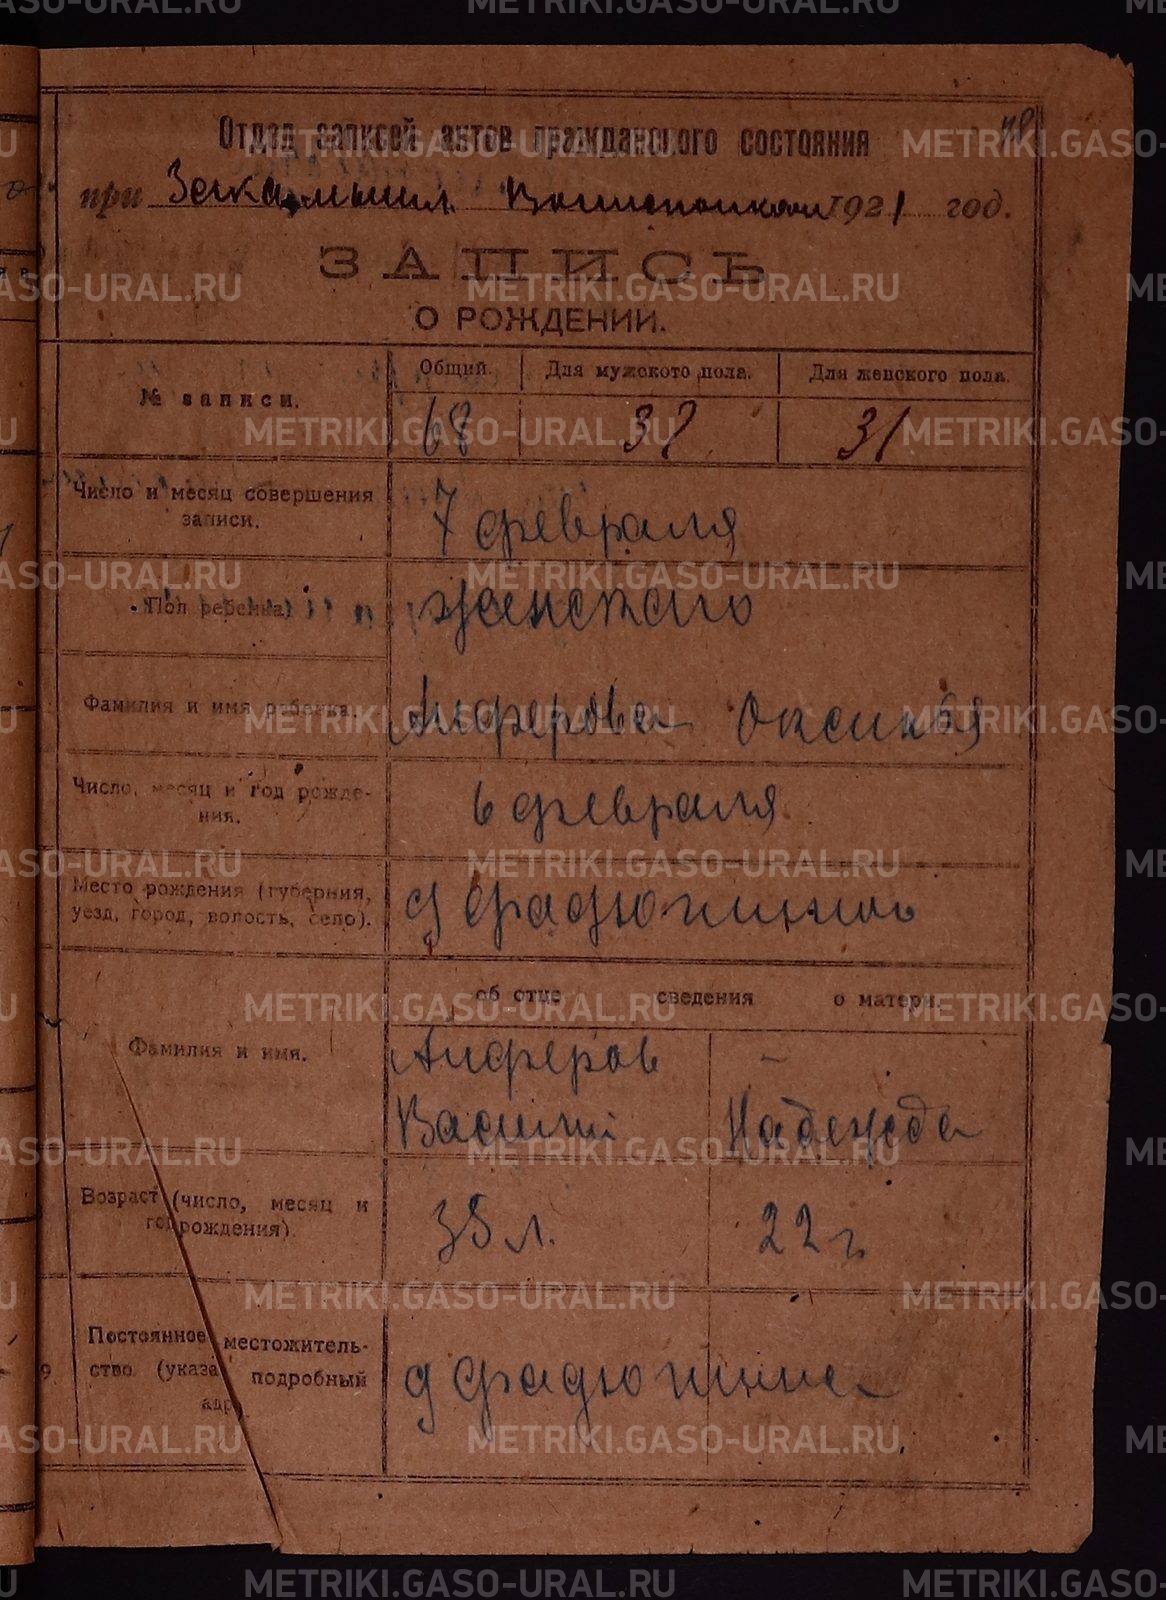 Отдел записей актов гражданского состояния
при 1921 год.
ЗАПИСЬ
О РОЖДЕНИИ.
№ записи.
Общий. Для мужского пола. Для женского пола.
68 37 31
Число и месяц совершения записи.
7 февраля
Пол ребенка.
женского
Фамилия и имя ребенка.
Алферова
Число, месяц и год рождения.
6 февраля
Место рождения (губерния, уезд, город, волость, село).
д
об отце сведения о матери.
Фамилия и имя.
Алферов –
Василий Надежда
Возраст (число, месяц и год рождения).
35 л. 22 г
Постоянное местожительство (указа подробный адр
д
METRIKI.GASO-URAL.RU